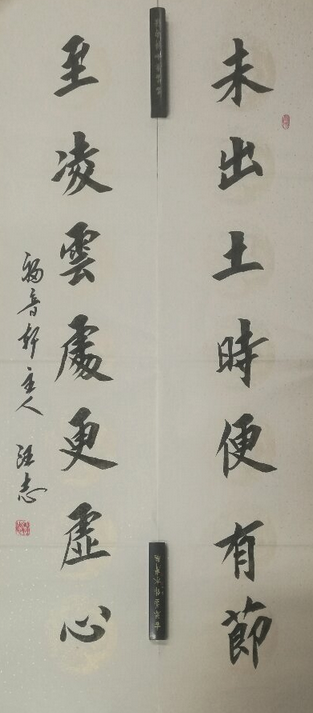 未出土時便有節
至凌雲處更虛心
福音軒主人 汪志